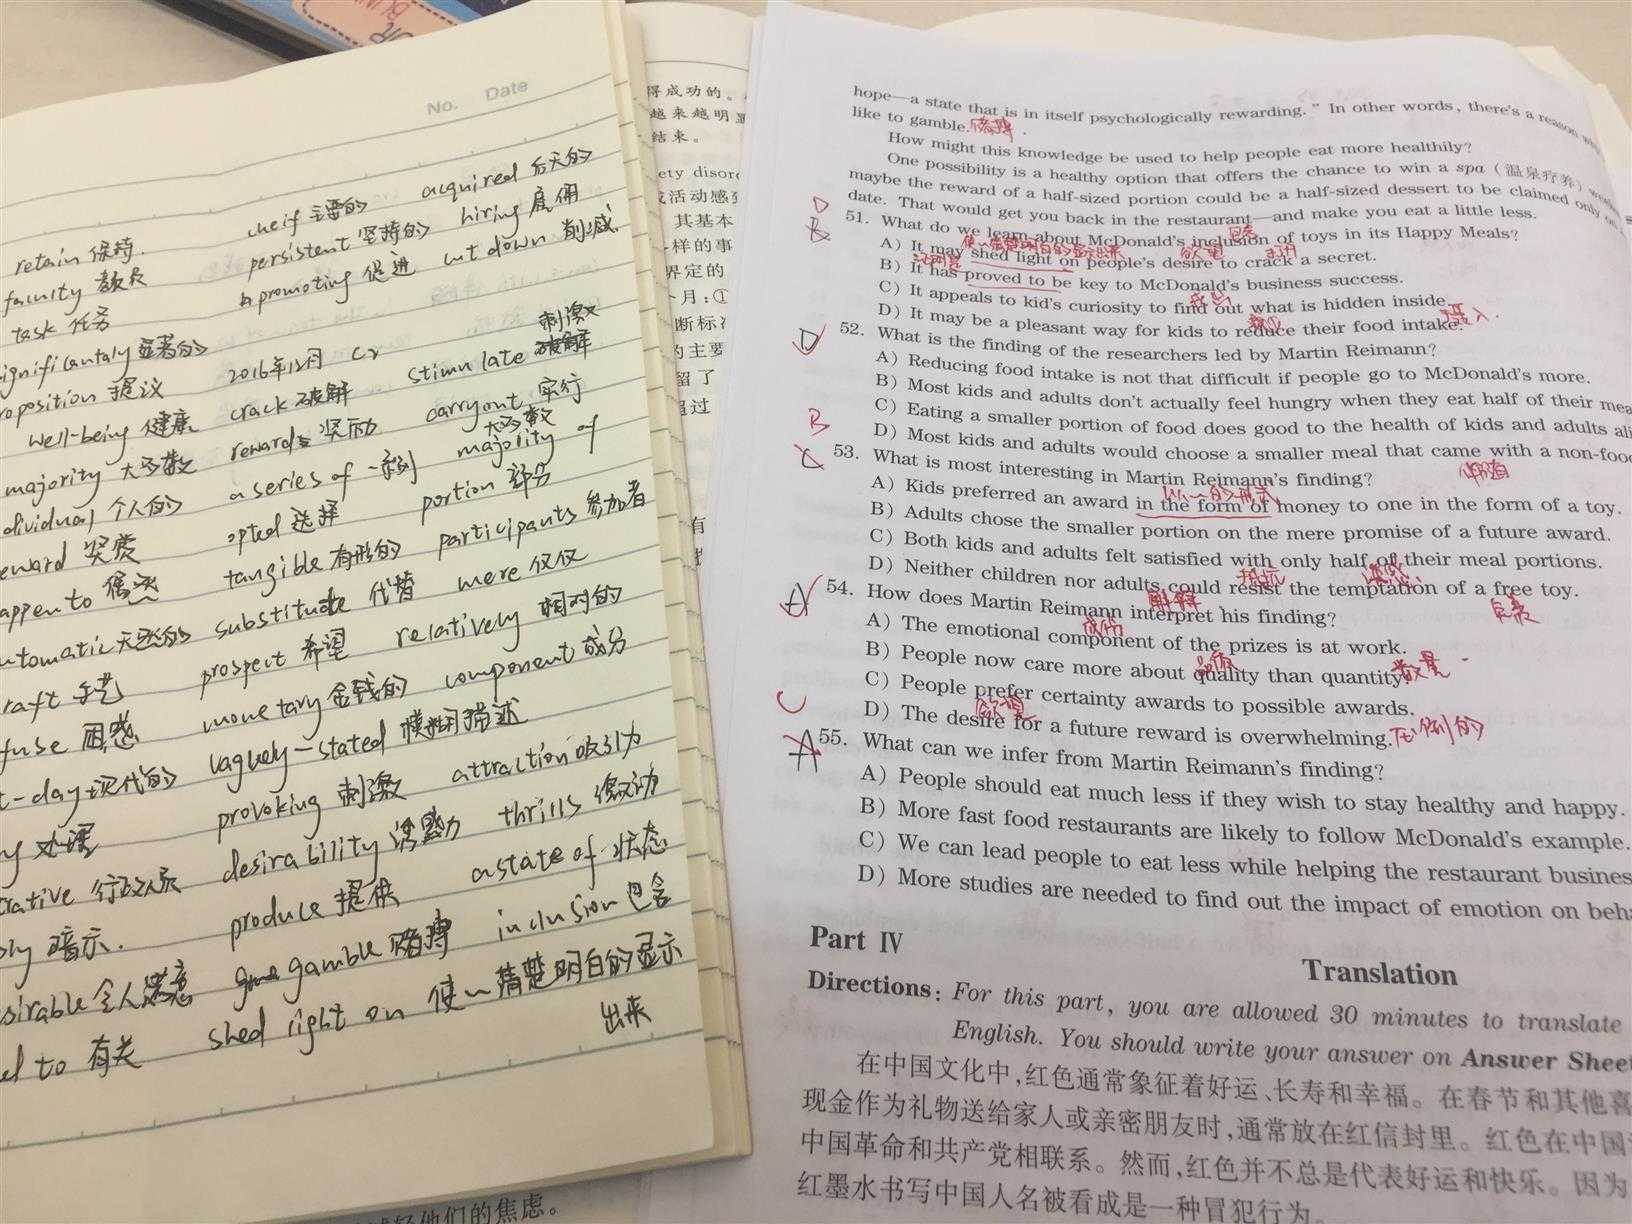 No. Date
retain 保持.
cheif 主要的
acquired 后天的
faculty 教员
persistent 坚持的
hiring 雇佣
task 任务
promoting 促进
cut down 削减
ignificantaly 显著的
2016年12月
stimulate 刺激
oposition 提议
crack 破解
carryout 实行
well-being 健康
rewards 奖励
majority of 大多数
majority 大多数
a series of 一系列
portion 部分
dividual 个人的
opted 选择
participants 参加者
eward 奖赏
tangible 有形的
mere 仅仅
appen to 偶然
substitude 代替
relatively 相对的
utomatic 天然的
prospect 希望
component 成分
raft 手艺
monetary 金钱的
fuse 困惑
vaguely-stated 模糊描述
attraction 吸引力
t-day 现代的
provoking 刺激
thrills 激动
处理
desirability 诱惑力
a state of 状态
rative 行政人员
produce 提供
inclusion 包含
bly 暗示.
gamble 赌博
sirable 令人满意
shed right on 使~清楚明白的显示
出来
ed to 有关
得成功的。
越来越明显
结束。
ety disor
其基本
一样的事
界定的
的主要
hope—a state that is in itself psychologically rewarding." In other words, there's a reason
like to gamble. 赌博.
How might this knowledge be used to help people eat more healthily?
One possibility is a healthy option that offers the chance to win a spa (温泉疗养)
maybe the reward of a half-sized portion could be a half-sized dessert to be claimed only
date. That would get you back in the restaurant—and make you eat a little less.
D
51. What do we learn about McDonald's inclusion of toys in its Happy Meals?
使~清楚明白的显示出来 欲望
A) It may shed light on people's desire to crack a secret.
B) It has proved to be key to McDonald's business success.
C) It appeals to kid's curiosity to find out what is hidden inside.
D) It may be a pleasant way for kids to reduce their food intake. 摄入.
D
52. What is the finding of the researchers led by Martin Reimann?
A) Reducing food intake is not that difficult if people go to McDonald's more.
B) Most kids and adults don't actually feel hungry when they eat half of their mea
C) Eating a smaller portion of food does good to the health of kids and adults ali
D) Most kids and adults would choose a smaller meal that came with a non-foo
B
C
53. What is most interesting in Martin Reimann's finding?
以~的形式
A) Kids preferred an award in the form of money to one in the form of a toy.
B) Adults chose the smaller portion on the mere promise of a future award.
C) Both kids and adults felt satisfied with only half of their meal portions.
抵抗
D) Neither children nor adults could resist the temptation of a free toy.
A
54. How does Martin Reimann interpret his finding? 解释
成分
A) The emotional component of the prizes is at work.
B) People now care more about quality than quantity. 数量.
C) People prefer certainty awards to possible awards.
欲望
D) The desire for a future reward is overwhelming. 压倒的
C
A
55. What can we infer from Martin Reimann's finding?
A) People should eat much less if they wish to stay healthy and happy.
B) More fast food restaurants are likely to follow McDonald's example.
C) We can lead people to eat less while helping the restaurant business
D) More studies are needed to find out the impact of emotion on beha
Part IV
Translation
Directions: For this part, you are allowed 30 minutes to translate
English. You should write your answer on Answer Sheet
在中国文化中,红色通常象征着好运、长寿和幸福。在春节和其他喜
现金作为礼物送给家人或亲密朋友时,通常放在红信封里。红色在中国
中国革命和共产党相联系。然而,红色并不总是代表好运和快乐。因为
红墨水书写中国人名被看成是一种冒犯行为。
他们的焦虑。